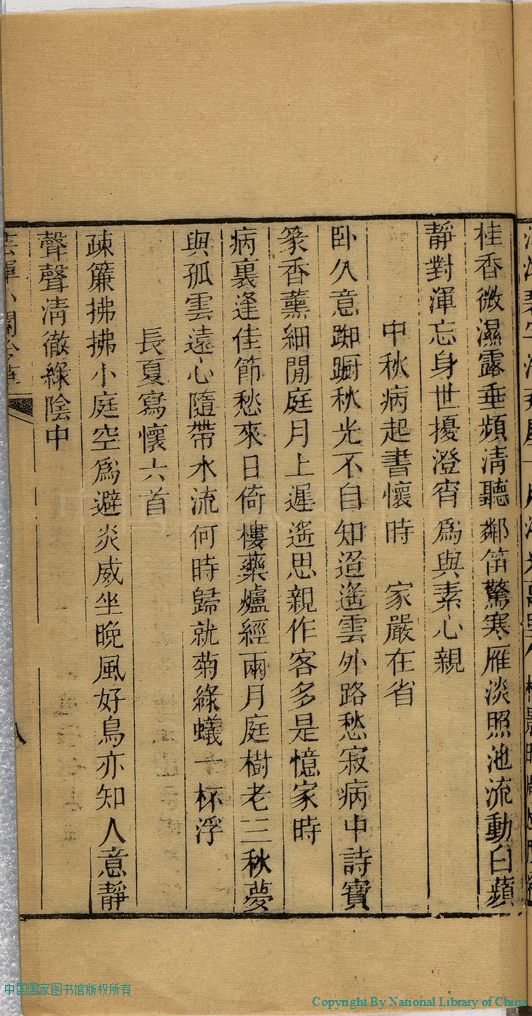 桂香微濕露垂頻清聽鄰笛驚寒雁淡照池流動白蘋
靜對渾忘身世擾澄宵爲與素心親
中秋病起書懷時 家嚴在省
卧久意踟蹰秋光不自知迢遙雲外路愁寂病中詩寶
篆香薰細閒庭月上遲遙思親作客多是憶家時
病裏逢佳節愁來日倚樓藥爐經兩月庭樹老三秋夢
與孤雲遠心隨帶水流何時歸就菊綠蟻一杯浮
長夏寫懷六首
疎簾拂拂小庭空爲避炎威坐晚風好鳥亦知人意靜
聲聲清徹綠陰中
八
中国国家图书馆版权所有
Copyright By National Library of China